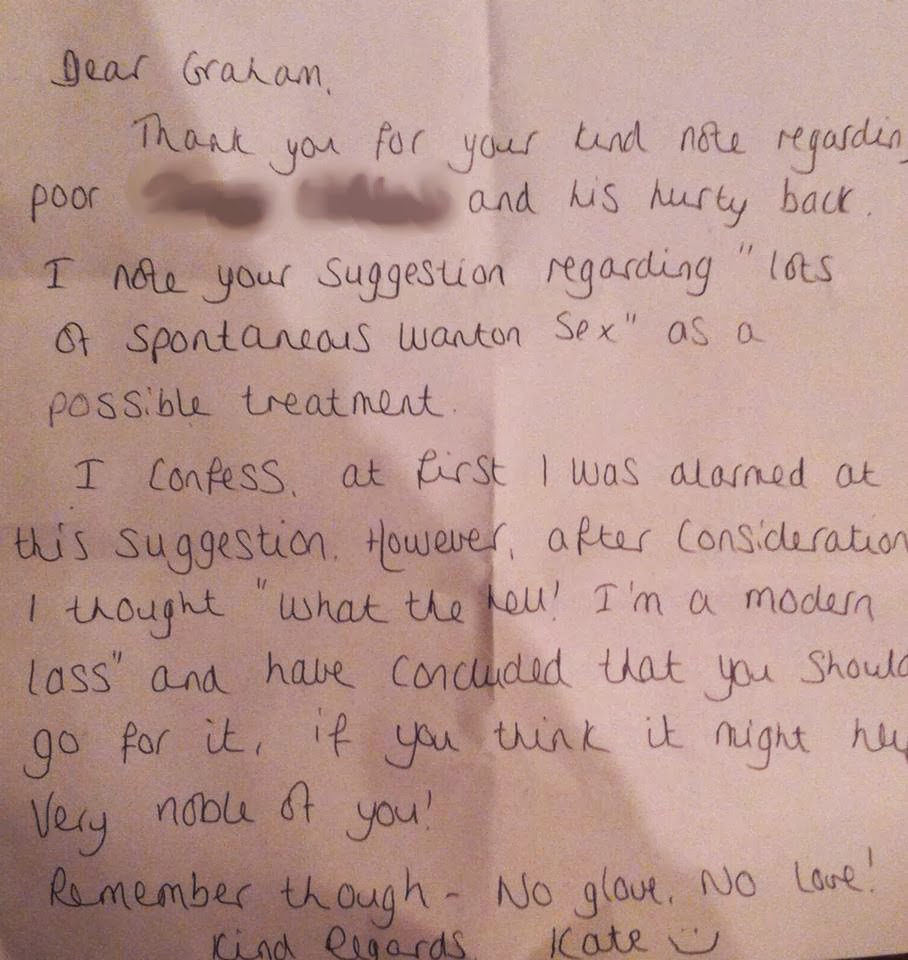 Dear Graham,
Thank you for your kind note regardin
poor and his hurty back.
I note your suggestion regarding "lots
of spontaneous wanton sex" as a
possible treatment.
I confess, at first I was alarmed at
this suggestion. However, after consideration
I thought "what the hell! I'm a modern
lass" and have concluded that you should
go for it, if you think it might hel
Very noble of you!
Remember though - No glove, No Love!
Kind Regards Kate